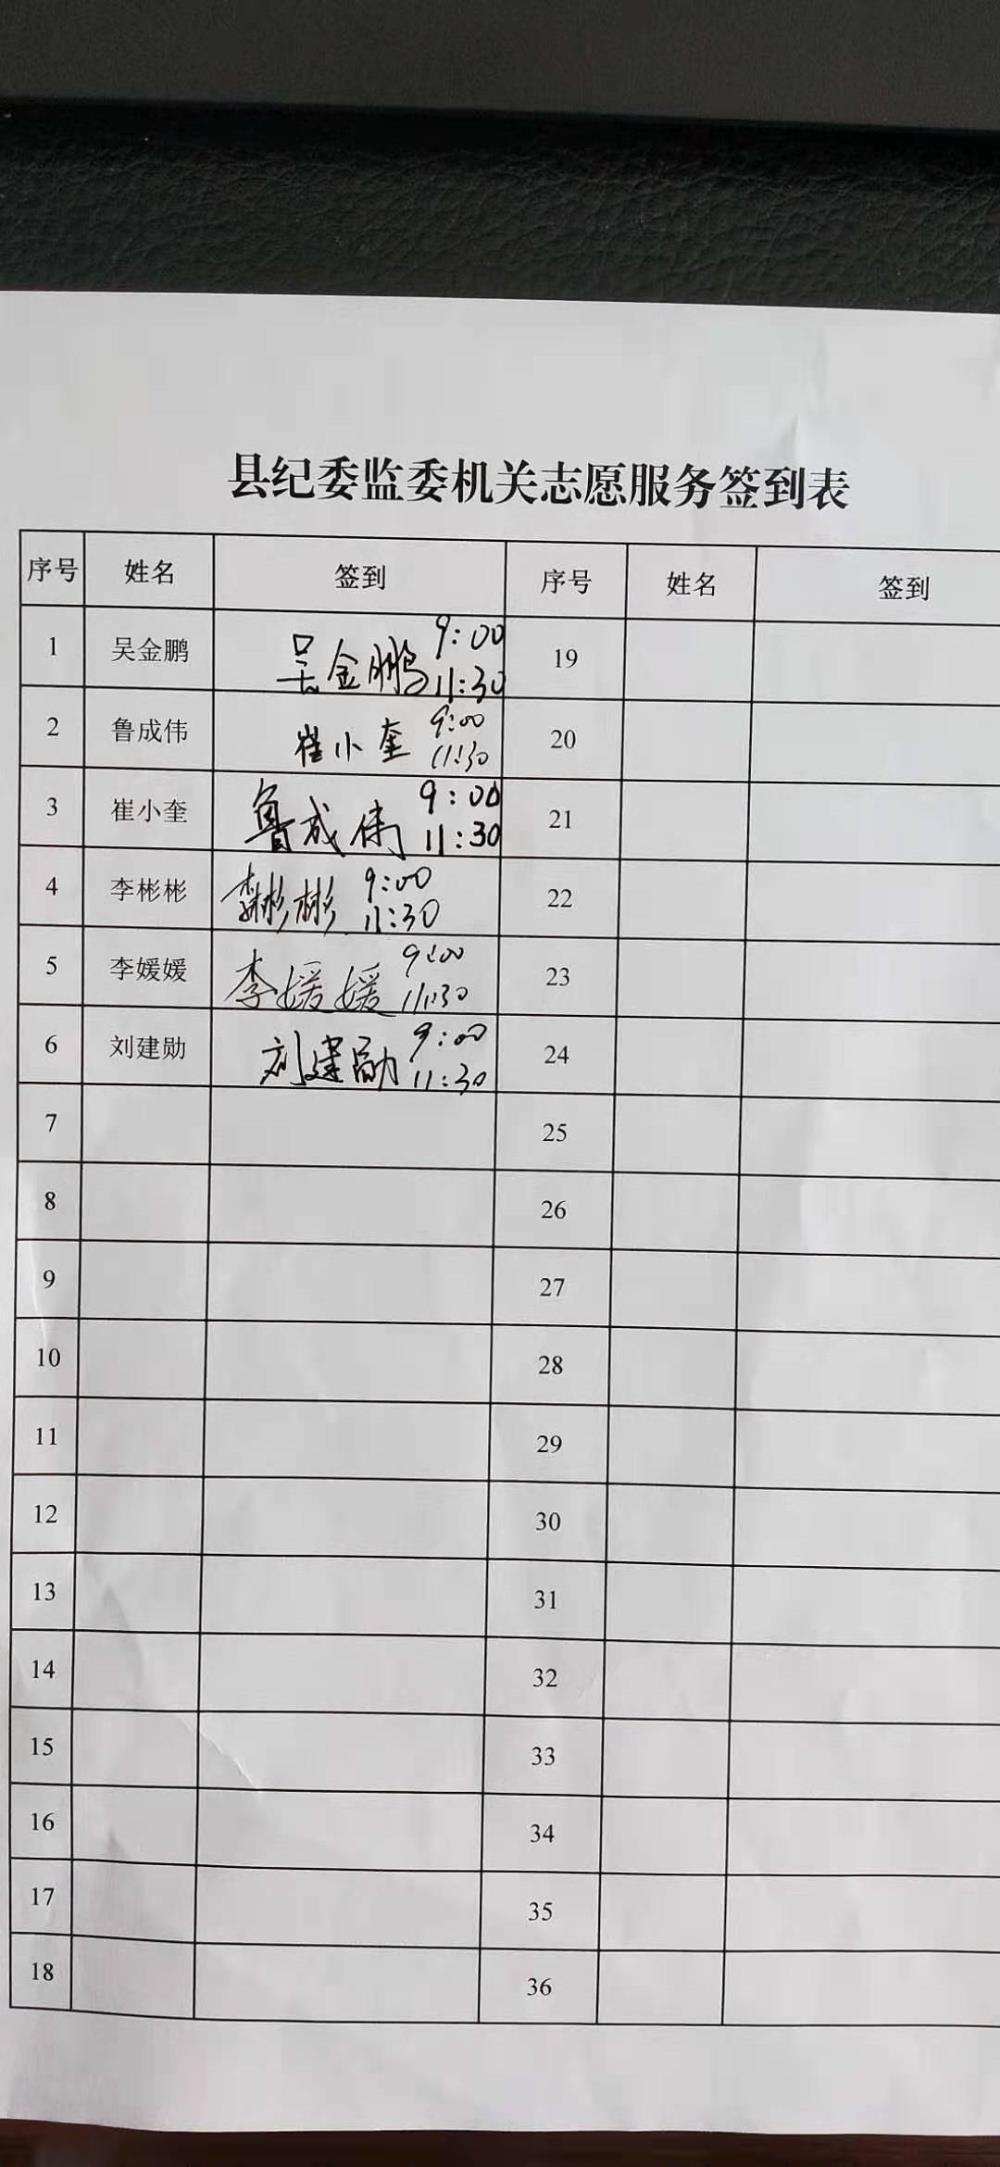 县纪委监委机关志愿服务签到表
序号 姓名 签到 序号 姓名 签到
1 吴金鹏 吴金鹏 9:00 11:30 19
2 鲁成伟 崔小奎 9:00 11:30 20
3 崔小奎 鲁成伟 9:00 11:30 21
4 李彬彬 李彬彬 9:00 11:30 22
5 李媛媛 李媛媛 9:00 11:30 23
6 刘建勋 刘建勋 9:00 11:30 24
7 25
8 26
9 27
10 28
11 29
12 30
13 31
14 32
15 33
16 34
17 35
18 36